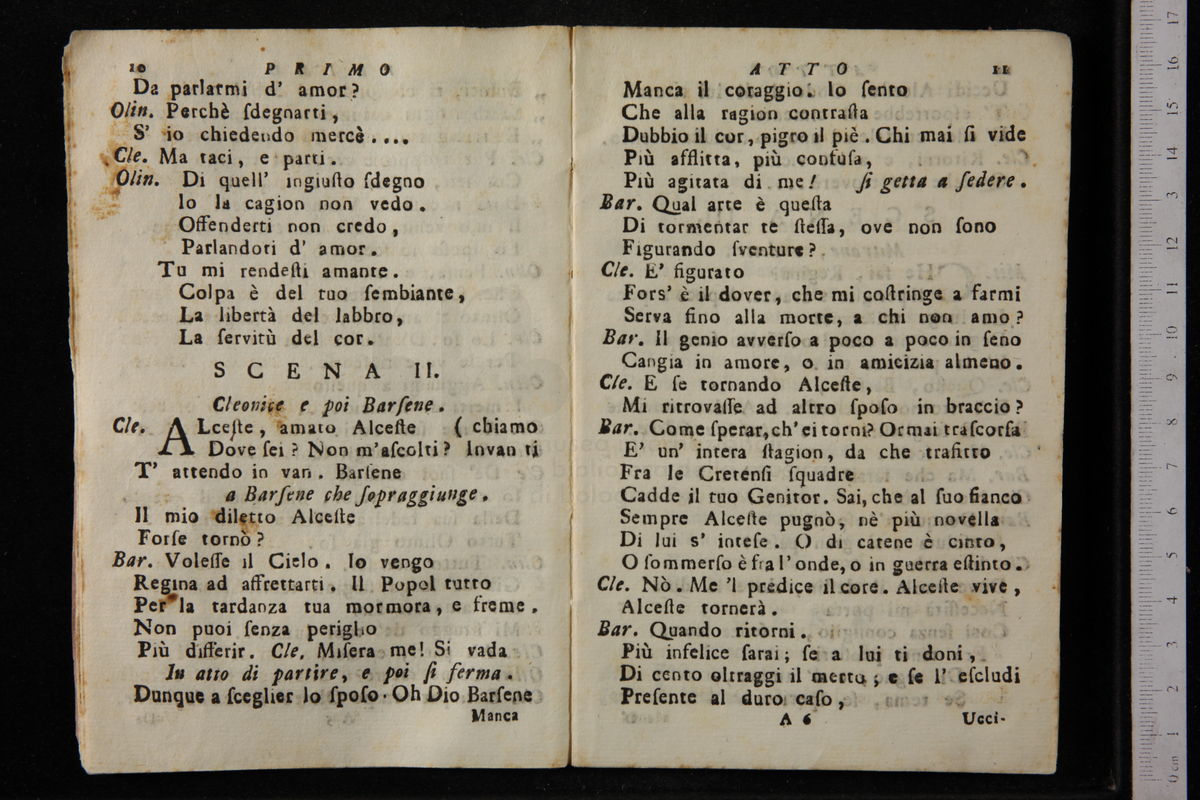 10 PRIMO
Da parlarmi d' amor?
Olin. Perchè ſdegnarti,
S' io chiedendo mercè ....
Cle. Ma taci, e parti.
Olin. Di quell' ingiuſto ſdegno
Io la cagion non vedo.
Offenderti non credo,
Parlandoti d' amor.
Tu mi rendeſti amante.
Colpa è del tuo ſembiante,
La libertà del labbro,
La ſervitù del cor.
SCENA II.
Cleonice e poi Barſene.
Cle. ALceſte, amato Alceſte ( chiamo
Dove ſei? Non m'aſcolti? Invan ti
T' attendo in van. Barſene
a Barſene che ſopraggiunge.
Il mio diletto Alceſte
Forſe tornò?
Bar. Voleſſe il Cielo. Io vengo
Regina ad affrettarti. Il Popol tutto
Per la tardanza tua mormora, e freme.
Non puoi ſenza periglio
Più differir. Cle. Miſera me! Si vada
In atto di partire, e poi ſi ferma.
Dunque a ſceglier lo ſpoſo. Oh Dio Barſene
Manca
ATTO 11
Manca il coraggio. Io ſento
Che alla ragion contraſta
Dubbio il cor, pigro il piè. Chi mai ſi vide
Più afflitta, più confuſa,
Più agitata di me! ſi getta a ſedere.
Bar. Qual arte è queſta
Di tormentar te ſteſſa, ove non ſono
Figurando ſventure?
Cle. E' figurato
Fors' è il dover, che mi coſtringe a farmi
Serva fino alla morte, a chi non amo?
Bar. Il genio avverſo a poco a poco in ſeno
Cangia in amore, o in amicizia almeno.
Cle. E ſe tornando Alceſte,
Mi ritrovaſſe ad altro ſpoſo in braccio?
Bar. Come ſperar, ch'ei torni? Ormai traſcorſa
E' un' intera ſtagion, da che trafitto
Fra le Cretenſi ſquadre
Cadde il tuo Genitor. Sai, che al ſuo fianco
Sempre Alceſte pugnò, nè più novella
Di lui s' inteſe. O di catene è cinto,
O ſommerſo è fra l'onde, o in guerra eſtinto.
Cle. Nò. Me 'l predice il core. Alceſte vive,
Alceſte tornerà.
Bar. Quando ritorni.
Più infelice ſarai; ſe a lui ti doni,
Di cento oltraggi il merto; e ſe l' eſcludi
Preſente al duro caſo,
A 6 Ucci-
17
16
15
14
13
12
11
10
9
8
7
6
5
4
3
2
1
0 cm